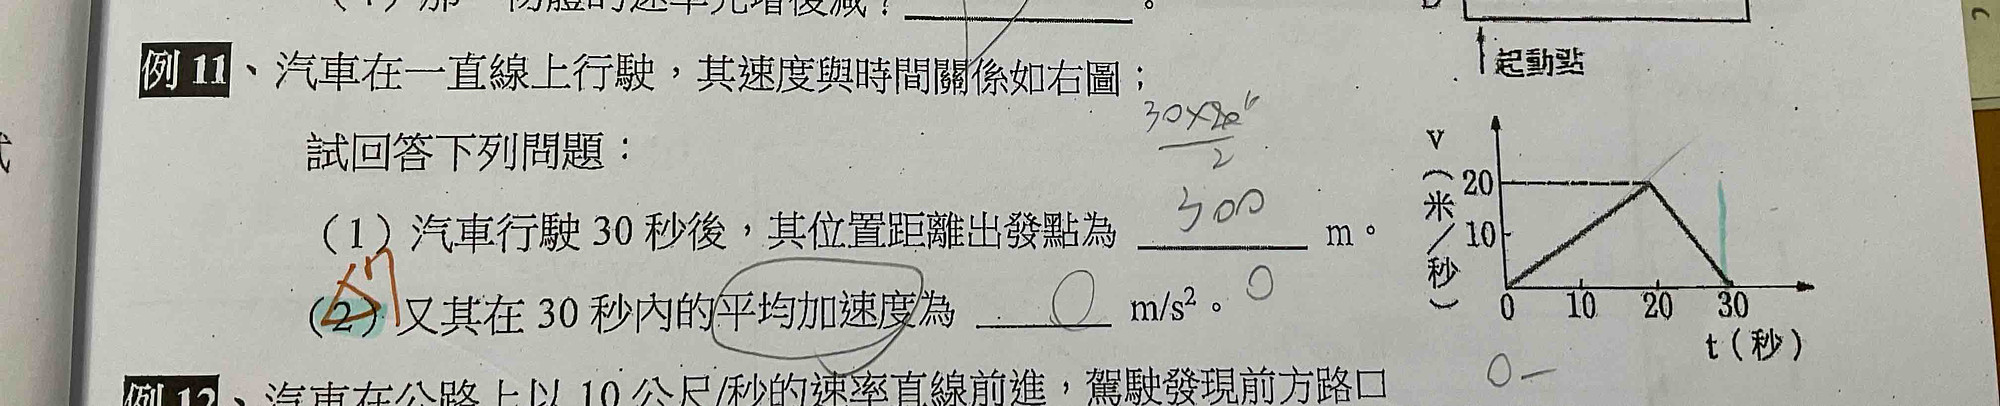 起動點
例 11、汽車在一直線上行駛，其速度與時間關係如右圖；
試回答下列問題：
30×20
2
（1）汽車行駛 30 秒後，其位置距離出發點為 300 m。
（2）又其在 30 秒內的平均加速度為 0 m/s²。0
v（米／秒）
20
10
0 10 20 30
t（秒）
0−
例 12、汽車在公路上以 10 公尺/秒的速率直線前進，駕駛發現前方路口